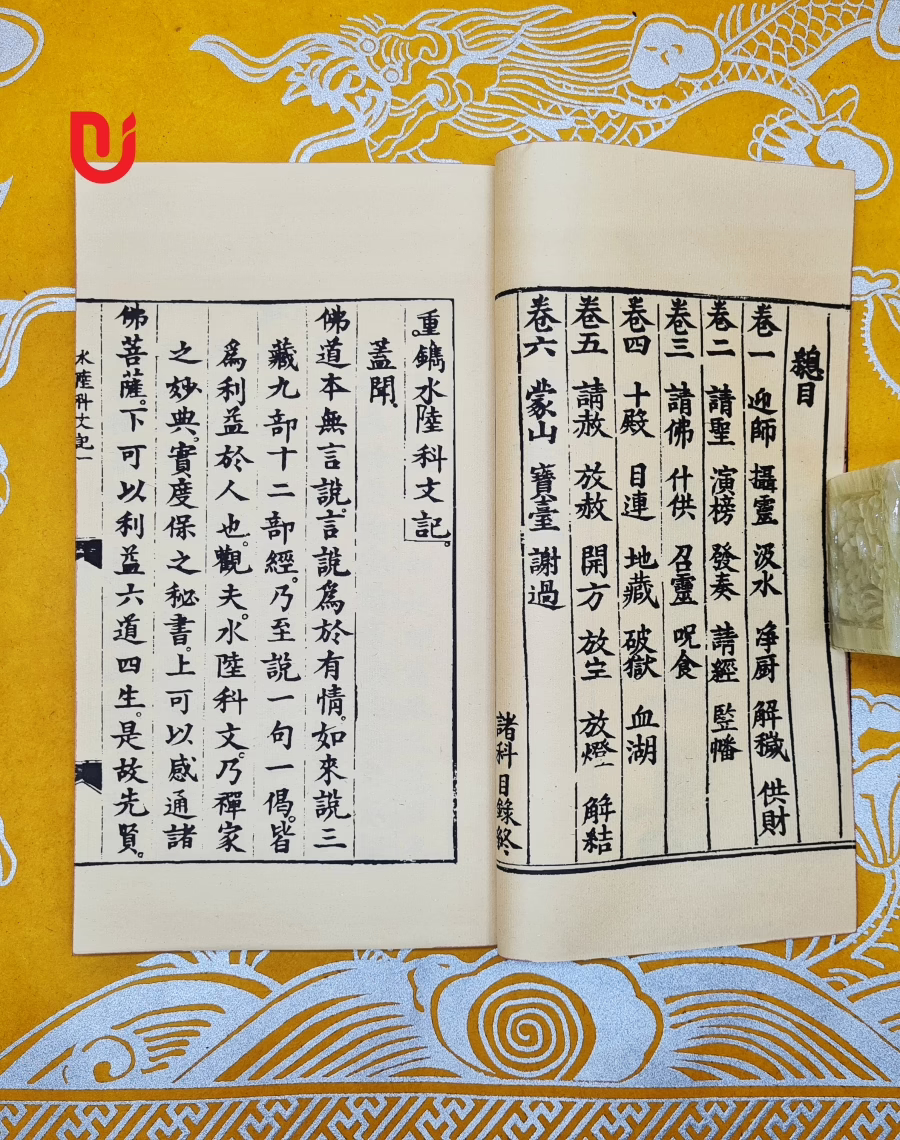 總目
卷一 迎師 攝靈 汲水 淨厨 解穢 供財
卷二 請聖 演榜 發奏 請經 監幡
卷三 請佛 什供 召靈 呪食
卷四 十殿 目連 地藏 破獄 血湖
卷五 請赦 放赦 開方 放生 放燈 解結
卷六 蒙山 寶臺 謝過
諸科目錄終
重鐫水陸科文記。
蓋聞。
佛道本無言說。言說爲於有情。如來說三
藏九部十二部經。乃至說一句一偈。皆
爲利益於人也。觀夫。水陸科文。乃禪家
之妙典。實度保之秘書。上可以感通諸
佛菩薩。下可以利益六道四生。是故先賢。
水陸科文記一